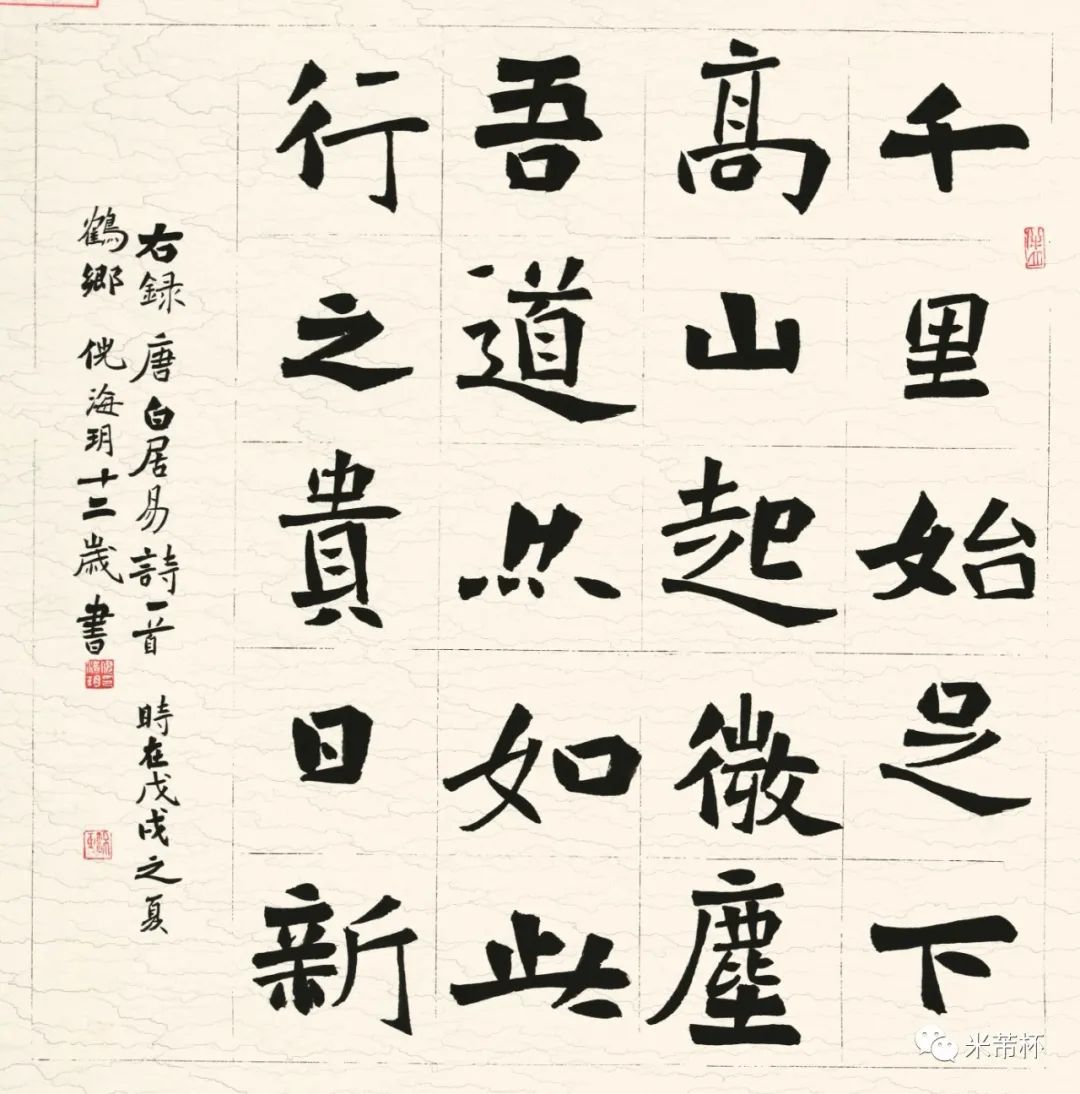 千里始足下
髙山起微塵
吾道亦如此
行之貴日新
右録唐白居易詩一首 時在戊戌之夏
鶴鄉 海玥十二歲書
米芾杯